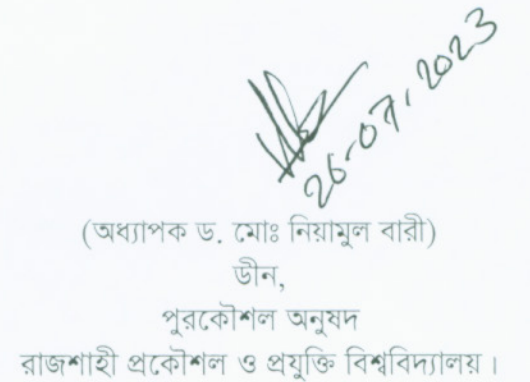 26-07-2023
(অধ্যাপক ড. মোঃ নিয়ামুল বারী)
ডীন,
পুরকৌশল অনুষদ
রাজশাহী প্রকৌশল ও প্রযুক্তি বিশ্ববিদ্যালয়।